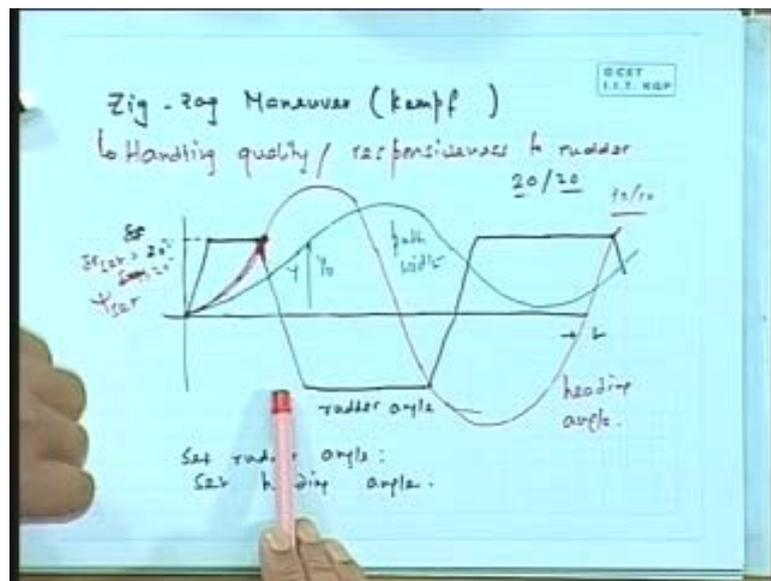 © CET
I.I.T. KGP
Zig-zag Maneuver (Kempf )
Handling quality / responsiveness to rudder
20/20
10/10
= 20°
path
width
y
y0
t
rudder angle
heading
angle.
Set rudder angle:
Set heading angle.